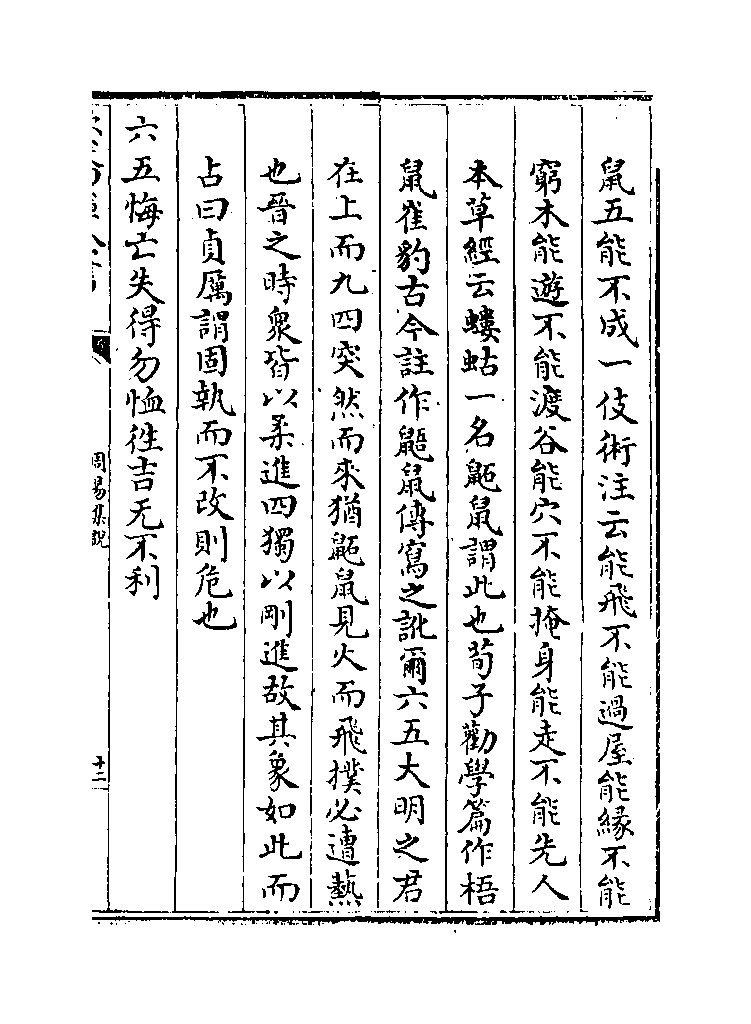 鼠五能不成一伎術注云能飛不能過屋能緣不能
窮木能遊不能渡谷能穴不能掩身能走不能先人
本草經云螻蛄一名鼫鼠謂此也荀子勸學篇作梧
鼠崔豹古今註作鼯鼠傳寫之訛爾六五大明之君
在上而九四突然而來猶鼫鼠見火而飛撲必遭熱
也晉之時衆皆以柔進四獨以剛進故其象如此而
占曰貞厲謂固執而不改則危也
六五悔亡失得勿恤徃吉无不利
周易集說
十二